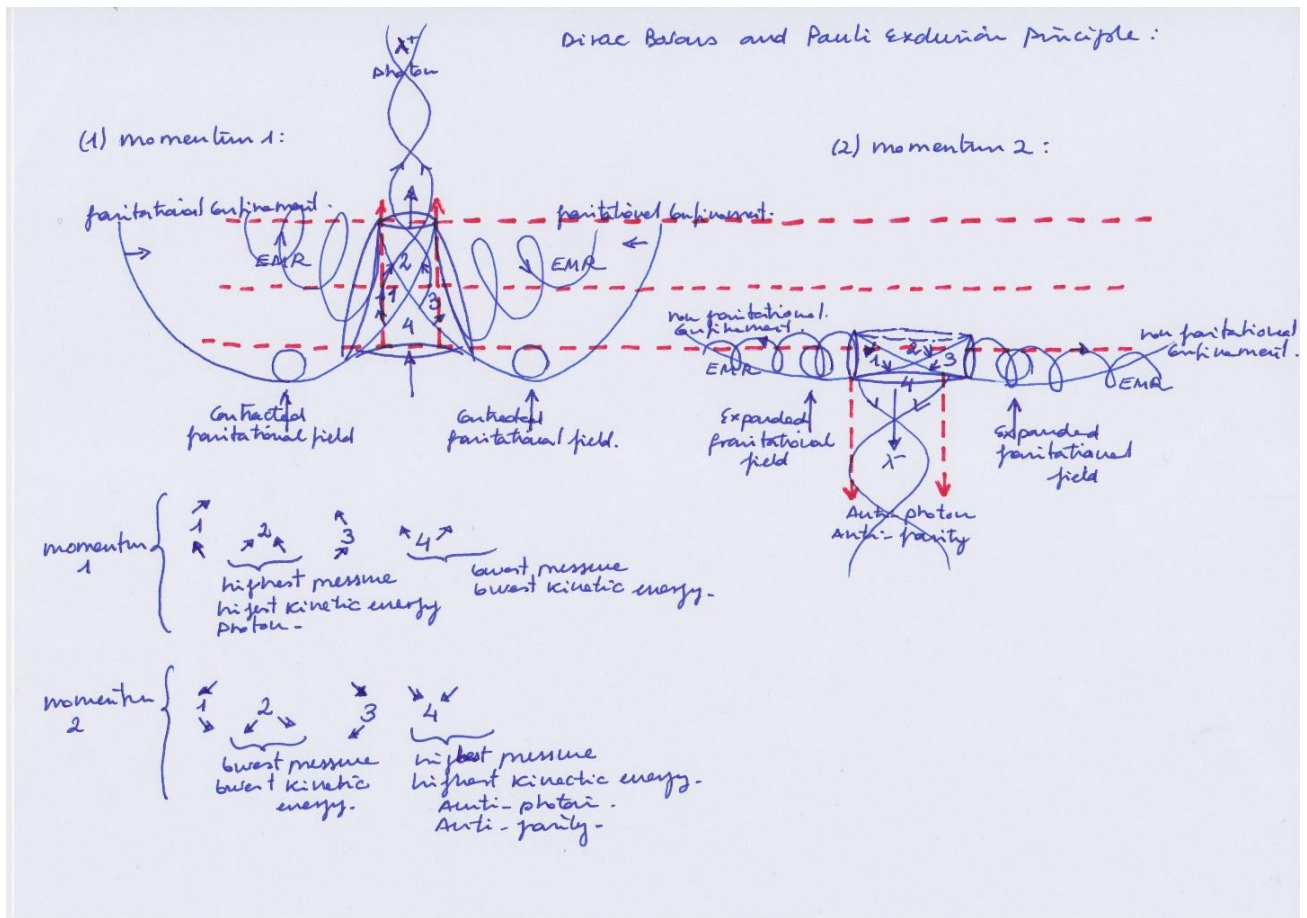 Dirac Bosons and Pauli Exclusion Principle:
(1) momentum 1:
(2) momentum 2:
λ+
photon
gravitational confinement.
gravitational confinement.
EMR
EMR
2
1
3
4
contracted
gravitational field
contracted
gravitational field.
non gravitational
confinement.
non gravitational
confinement.
EMR
EMR
1
2
3
4
Expanded
gravitational
field
Expanded
gravitational
field
λ-
Anti-photon
Anti-parity
momentum
1
1
2
3
4
highest pressure
highest kinetic energy
photon-
lowest pressure
lowest kinetic energy.
momentum
2
1
2
3
4
lowest pressure
lowest kinetic
energy.
highest pressure
highest kinectic energy.
Anti-photon.
Anti-parity-